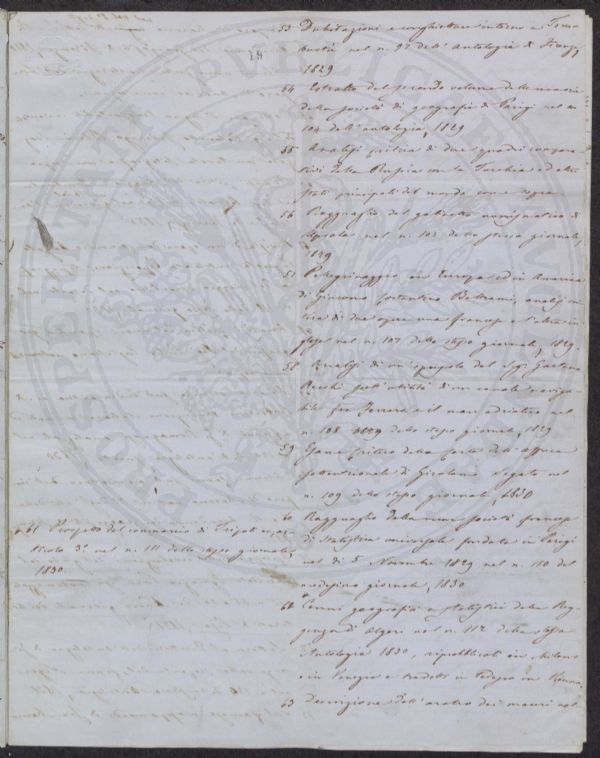 19
53 Dubitazioni e conghietture intorno a Tom
buctù nel n. 97 dell' Antologia di Firenze,
1829
54 Estratto del secondo volume delle memorie
della società di geografia di Parigi nel n.
104 dell' antologia, 1829
55 Analisi critica di due quadri compara
tivi della Russia con la Turchia ed altri
stati principali del mondo come sopra
56 Ragguaglio del gabinetto numismatico di
nel n. 105 dello stesso giornale,
1829
57 Pellegrinaggio in Europa ed in America
di Giacomo Costantino Beltrami, analisi cri
tica di due opere una francese l'altra in
glese nel n. 107 dello stesso giornale, 1829
58 Analisi di un opuscolo del sigr Gaetano
Recchi sull' utilità di un canale naviga
bile fra Ferrara e il mare adriatico nel
n. 108 dello stesso giornale, 1829
59 Esame critico della carta dell' affrica
settentrionale di Girolamo Segato nel
n. 109 dello stesso giornale, 1830
60 Ragguaglio della nuova società francese
di statistica universale fondata in Parigi
nel di 5 Novembre 1829 nel n. 110 del
medesimo giornale, 1830
61 Prospetto del commercio di Tripoli
ticolo 3º nel n. 111 dello stesso giornale,
1830
62 Cenni geografici e statistici della Reg
genza d' Algeri nel n. 112 della stessa
Antologia 1830, ripubblicati in Milano
e in Venezia e tradotti in tedesco in Vienna
63 Descrizione dell' aratro dei mauri nel
PROSPERITATI PUBLICAE